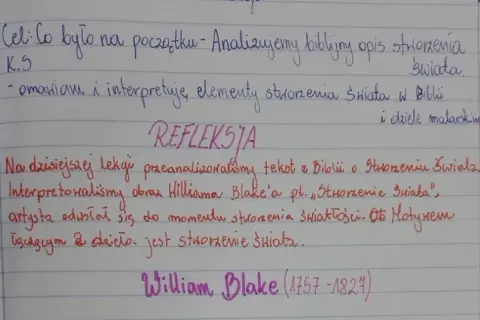 Cel: Co było na początku - Analizujemy biblijny opis stworzenia
świata.
K.S
- omawiam i interpretuję elementy stworzenia świata w Biblii
i dziele malarskim
REFLEKSJA
Na dzisiejszej lekcji przeanalizowaliśmy tekst z Biblii o Stworzeniu Świata.
Interpretowaliśmy obraz Williama Blake'a pt. „Stworzenie świata",
artysta odwołał się do momentu stworzenia światłości. Motywem
łączącym 2 dzieło. jest stworzenie świata.
William Blake (1757-1827)